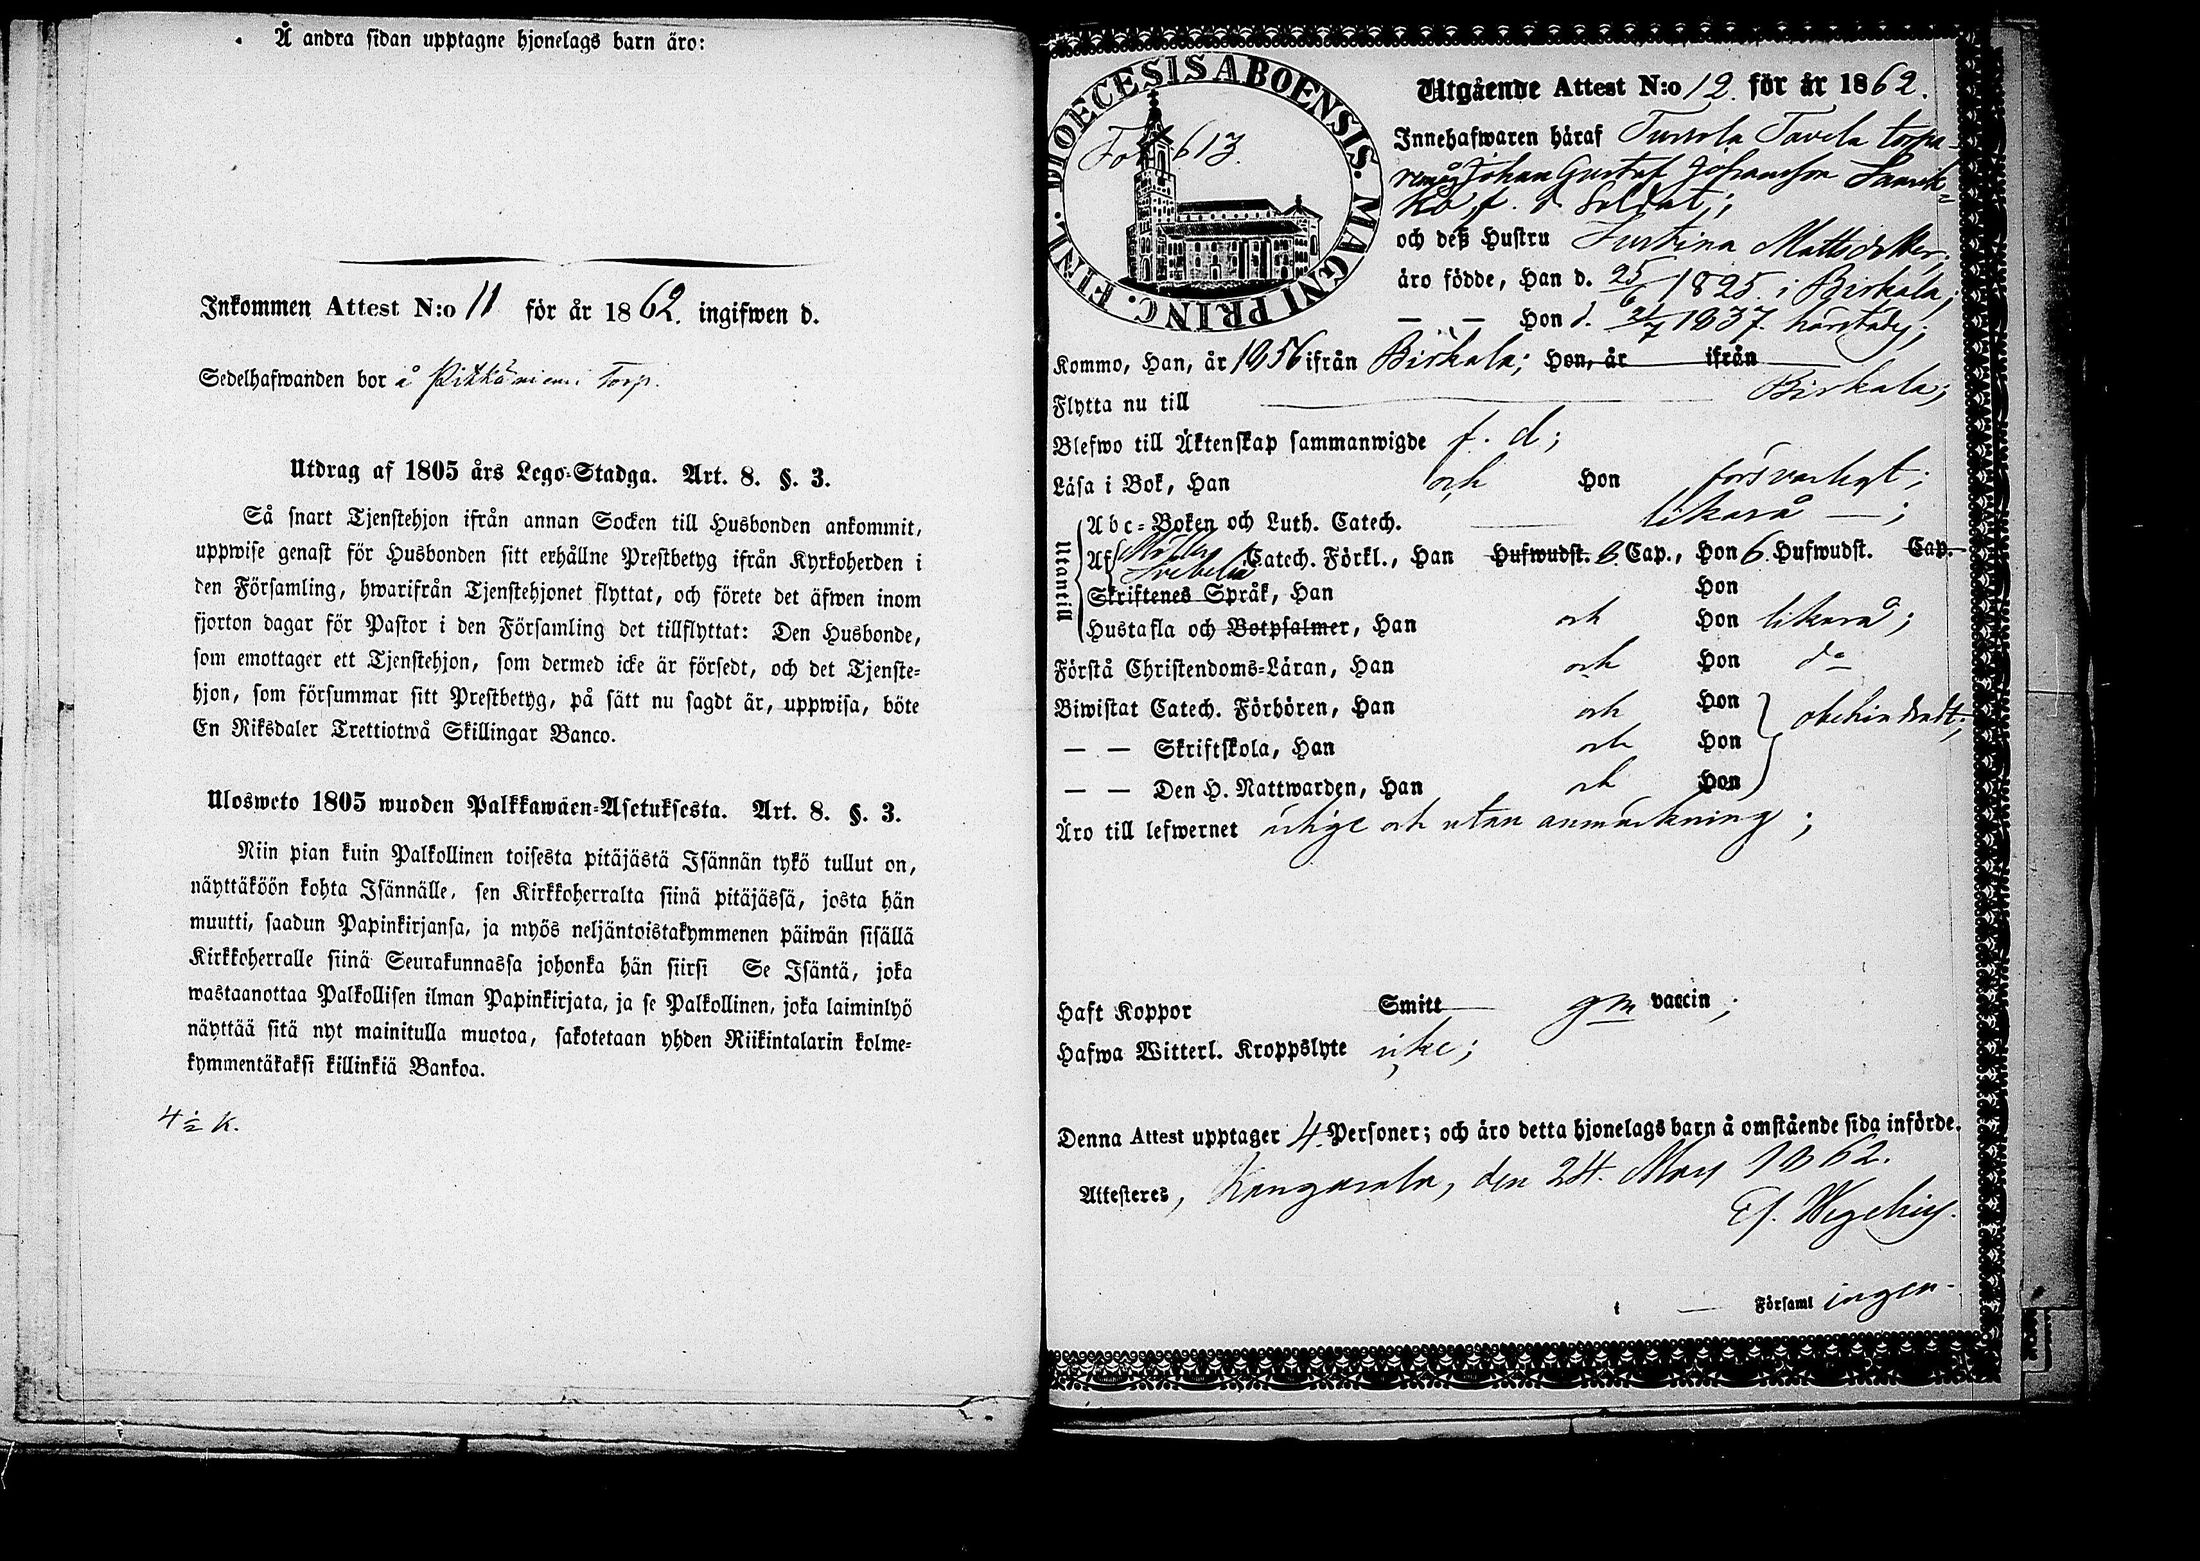 Å andra sidan upptagne hjonelags barn äro:
Inkommen Attest N:o 11 för år 1862. ingifwen d.
Sedelhafwanden bor å Pitkäniemi Torp.
Utdrag af 1805 års Lego-Stadga. Art. 8. §. 3.
Så snart Tjenstehjon ifrån annan Socken till Husbonden ankommit,
uppwise genast för Husbonden sitt erhållne Prestbetyg ifrån Kyrkoherden i
den Församling, hwarifrån Tjenstehjonet flyttat, och förete det äfwen inom
fjorton dagar för Pastor i den Församling det tillflyttat: Den Husbonde,
som emottager ett Tjenstehjon, som dermed icke är försedt, och det Tjenste-
hjon, som försummar sitt Prestbetyg, på sätt nu sagdt är, uppwisa, böte
En Riksdaler Trettiotwå Skillingar Banco.
Ulosweto 1805 wuoden Palkkawäen-Asetuksesta. Art. 8. §. 3.
Niin pian kuin Palkollinen toisesta pitäjästä Isännän tykö tullut on,
näyttäköön kohta Isännälle, sen Kirkkoherralta siinä pitäjässä, josta hän
muutti, saadun Papinkirjansa, ja myös neljäntoistakymmenen päiwän sisällä
Kirkkoherralle siinä Seurakunnassa johonka hän siirsi Se Isäntä, joka
wastaanottaa Palkollisen ilman Papinkirjata, ja se Palkollinen, joka laiminlyö
näyttää sitä nyt mainitulla muotoa, sakotetaan yhden Riikintalarin kolme-
kymmentäkaksi killinkiä Bankoa.
4 1/2 k.
DIOECESIS ABOENSIS. MAGNI PRINC. FINL.
Fol 613.
Utgående Attest N:o 12. för år 1862.
Innehafwaren häraf Tursola Tavela torpa-
remåg Johan Gustaf Johansson
f. d. Soldat;
och deß Hustru Justina Mattsdotter.
äro födde, Han d. 25/6 1825. i Birkala;
— — Hon d. 21/7 1837. härstädes;
Kommo, Han, år 1856 ifrån Birkala; Hon, år ifrån
Flytta nu till Birkala;
Blefwo till Äktenskap sammanwigde f. d;
Läsa i Bok, Han och Hon försvarligt;
Utantill
Abc-Boken och Luth. Catech. likaså —;
Af Möller Svebelii Catech. Förkl., Han Hufwudst. 6. Cap., Hon 6. Hufwudst. Cap.
Skriftenes Språk, Han Hon
Hustafla och Botpsalmer, Han och Hon likaså;
Förstå Christendoms-Läran, Han och Hon do
Biwistat Catech. Förhören, Han och Hon obehindradt;
— — Skriftskola, Han och Hon
— — Den H. Nattwarden, Han och Hon
Äro till lefwernet ärlige och utan anmärkning;
Haft Koppor Smitt gm vaccin;
Hafwa Witterl. Kroppslyte icke;
Denna Attest upptager 4. Personer; och äro detta hjonelags barn å omstående sida införde.
Attesteres, Kangasala, den 24. Mars 1862.
Ef. Wegelius.
Församl ingen.